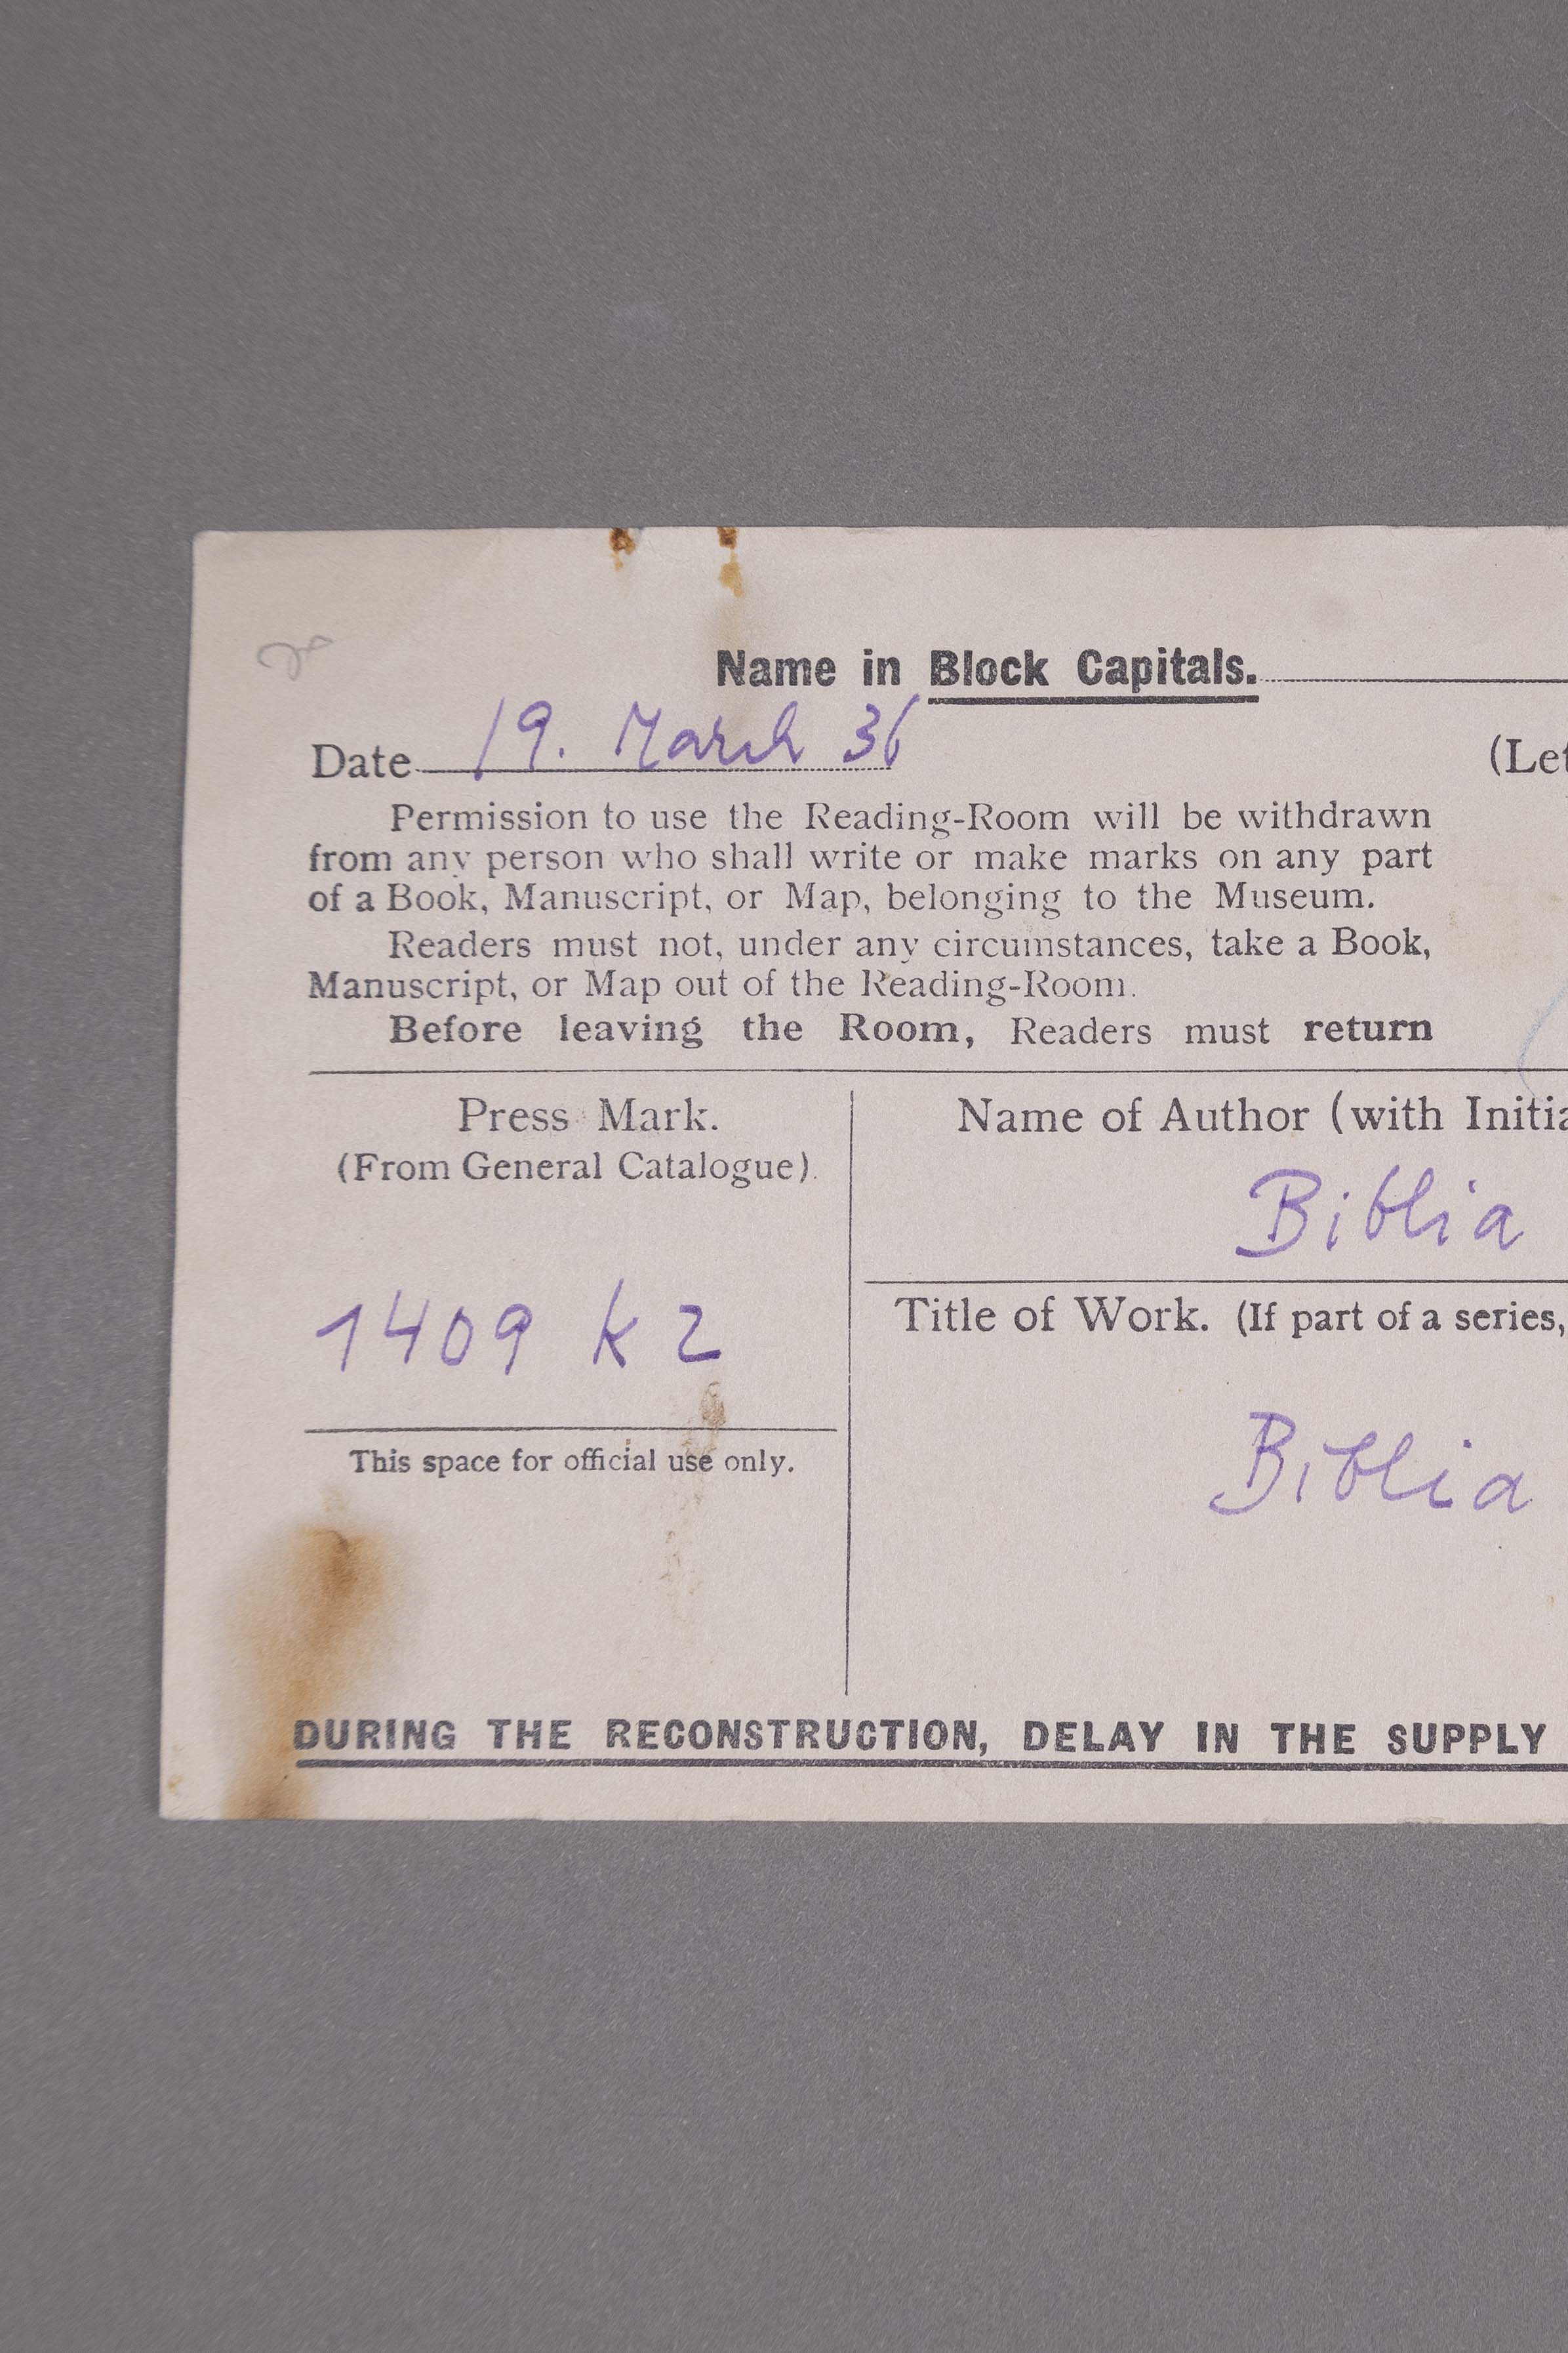 Name in Block Capitals.
Date 19. March 36
(Let
Permission to use the Reading-Room will be withdrawn
from any person who shall write or make marks on any part
of a Book, Manuscript, or Map, belonging to the Museum.
Readers must not, under any circumstances, take a Book,
Manuscript, or Map out of the Reading-Room.
Before leaving the Room, Readers must return
Press Mark.
(From General Catalogue).
1409 k 2
This space for official use only.
Name of Author (with Initia
Biblia
Title of Work. (If part of a series,
Biblia
DURING THE RECONSTRUCTION, DELAY IN THE SUPPLY